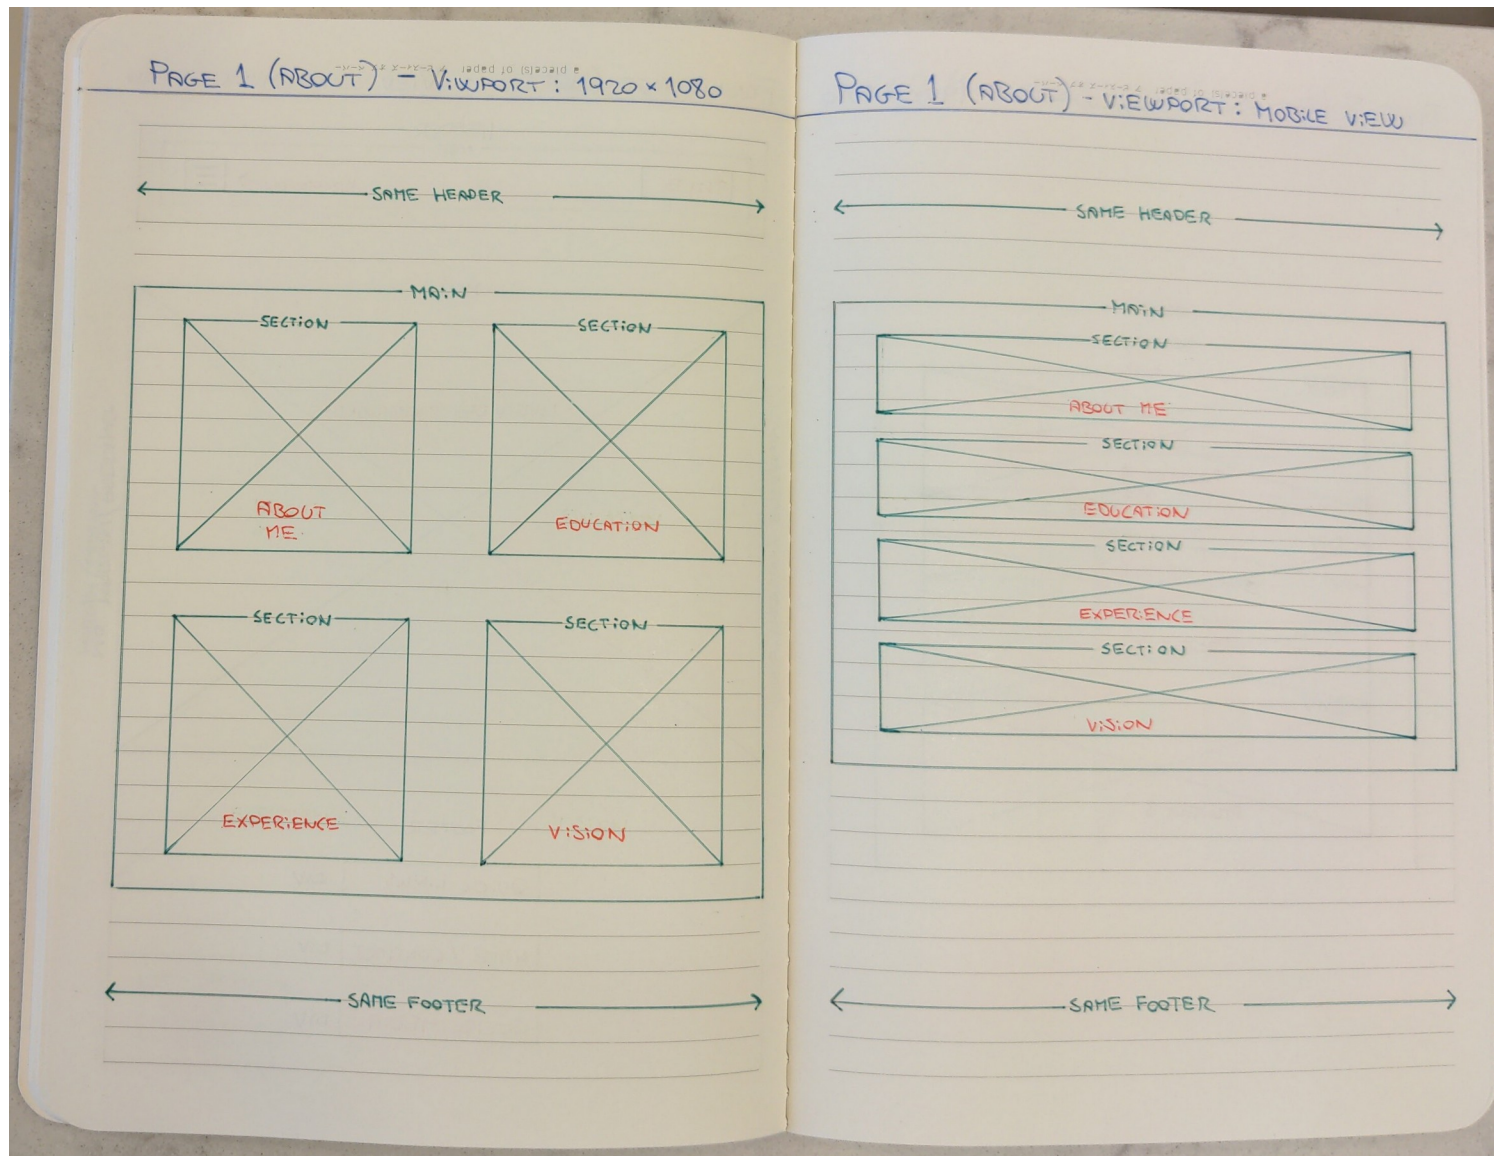 PAGE 1 (ABOUT) - ViWPORT: 1920 x 1080
SAME HEADER
MAiN
SECTiON
SECTiON
ABOUT
ME
EDUCATiON
SECTiON
SECTiON
EXPERiENCE
ViSiON
SAME FOOTER
PAGE 1 (ABOUT) - ViEWPORT: MOBiLE ViEW
SAME HEADER
MAiN
SECTiON
ABOUT ME
SECTiON
EDUCATiON
SECTiON
EXPERiENCE
SECTiON
ViSiON
SAME FOOTER